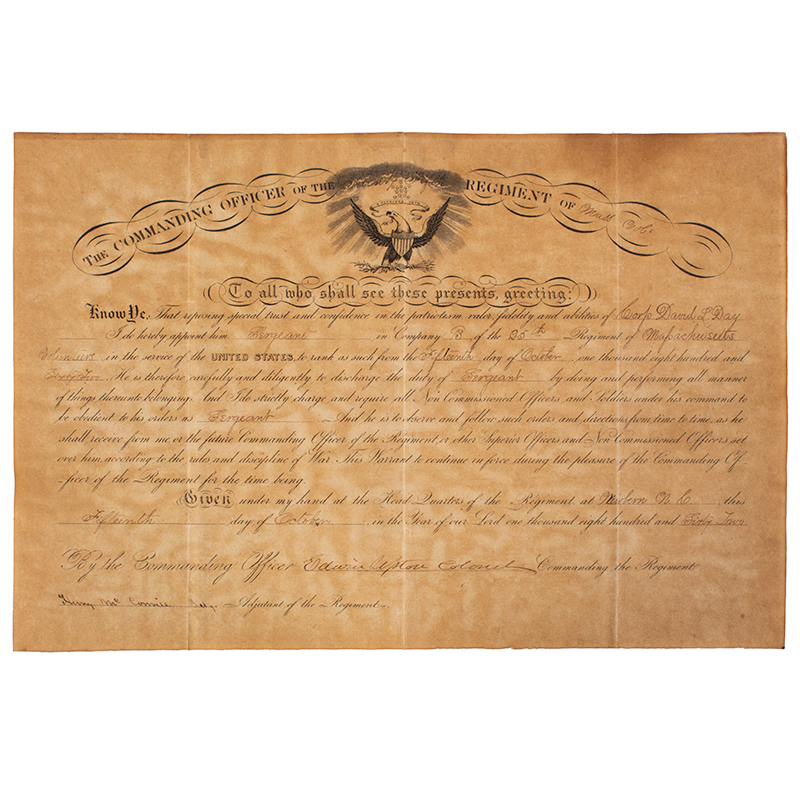 THE COMMANDING OFFICER OF THE REGIMENT OF Mass Vols
To all who shall see these presents, greeting:
Know Ye, That reposing special trust and confidence in the patriotism, valor, fidelity and abilities of Corp. David L Day
I do hereby appoint him Sergeant in Company B of the 25th Regiment of Massachusetts
Volunteers in the service of the UNITED STATES, to rank as such from the Fifteenth day of October one thousand eight hundred and
Sixty Two He is therefore carefully and diligently to discharge the duty of Sergeant by doing and performing all manner
of things thereunto belonging. And I do strictly charge and require all Non Commissioned Officers and Soldiers under his command to
be obedient to his orders as Sergeant And he is to observe and follow such orders and directions from time to time, as he
shall receive from me or the future Commanding Officer of the Regiment or other Superior Officers and Non Commissioned Officers set
over him, according to the rules and discipline of War. This Warrant to continue in force during the pleasure of the Commanding Of-
ficer of the Regiment for the time being.
Given under my hand at the Head Quarters of the Regiment at Newbern N.C. this
Fifteenth day of October in the Year of our Lord one thousand eight hundred and Sixty Two
By the Commanding Officer Edwin Upton Colonel Commanding the Regiment
Henry Mc Conville Adjutant of the Regiment